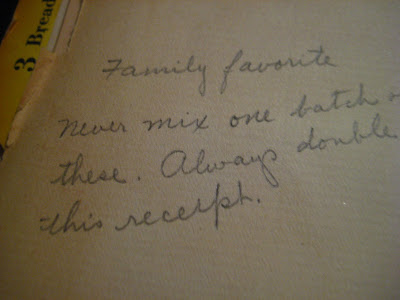 3 Bread
Family favorite
Never mix one batch o
these. Always double
this receipt.